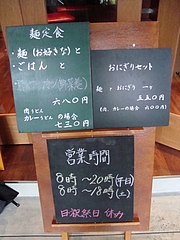 麺定食
・麺(お好きな)と
・ごはん と
六八〇円
肉うどん
カレーうどん の場合
七三〇円
おにぎりセット
麺 と おにぎり 一ヶ
五五〇円
(肉、カレーの場合 六〇〇円)
営業時間
8時〜20時(平日)
8時〜18時(土)
日祝祭日 休み